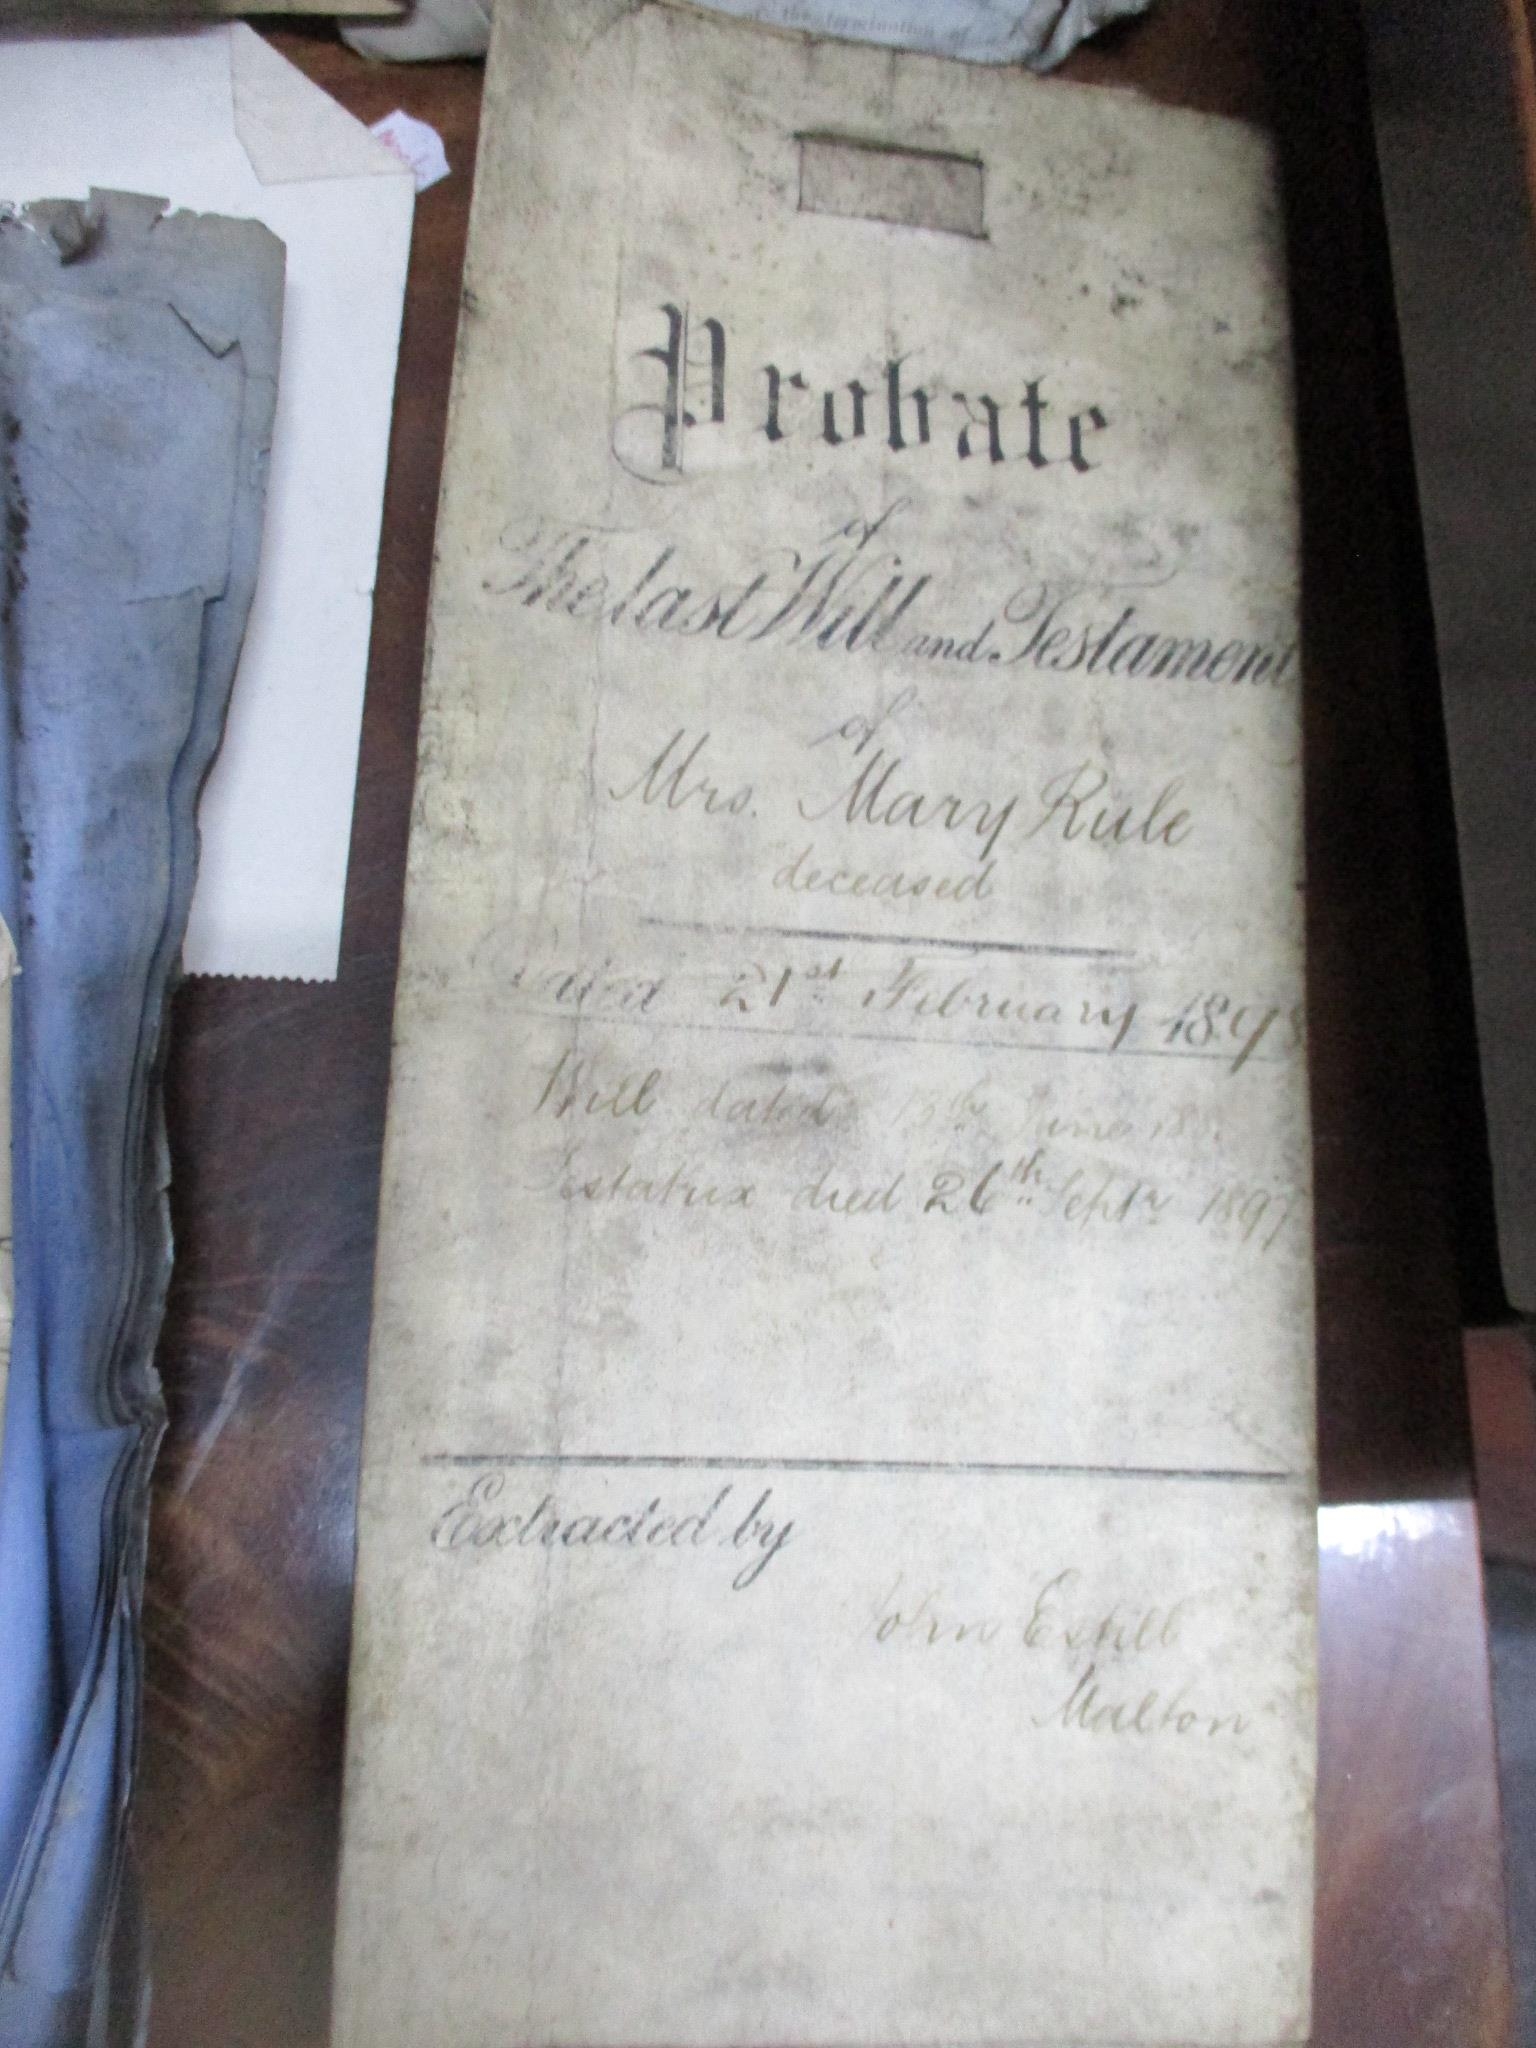 of the termination of
Probate
of
The last Will and Testament
of
Mrs. Mary Rule
deceased
Dated 21st February 1898
Will dated 13th June
Testatrix died 26th Septr 1897
Extracted by
John Estill
Malton